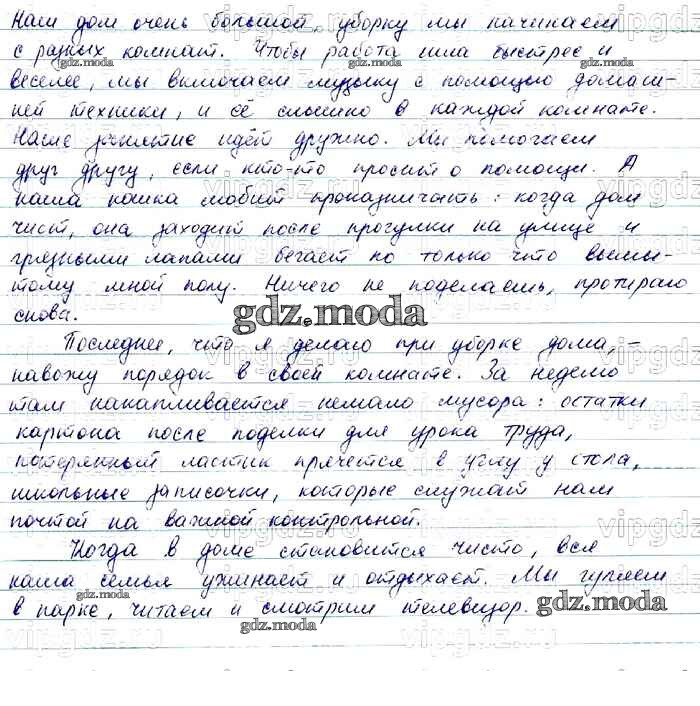 Наш дом очень большой, уборку мы начинаем
с разных комнат. Чтобы работа шла быстрее и
веселее, мы включаем музыку с помощью домаш-
ней техники, и её слышно в каждой комнате.
Наше занятие идёт дружно. Мы помогаем
друг другу, если кто-то просит о помощи. А
наша кошка любит проказничать: когда дом
чист, она заходит после прогулки на улице и
грязными лапами бегает по только что вымы-
тому мной полу. Ничего не поделаешь, протираю
снова.
gdz.moda
Последнее, что я делаю при уборке дома, -
навожу порядок в своей комнате. За неделю
там накапливается немало мусора: остатки
картона после поделки для урока труда,
потерянный ластик прячется в углу у стола,
школьные записочки, которые служат нам
почтой на важной контрольной.
Когда в доме становится чисто, вся
наша семья ужинает и отдыхает. Мы гуляем
в парке, читаем и смотрим телевизор.
gdz.moda